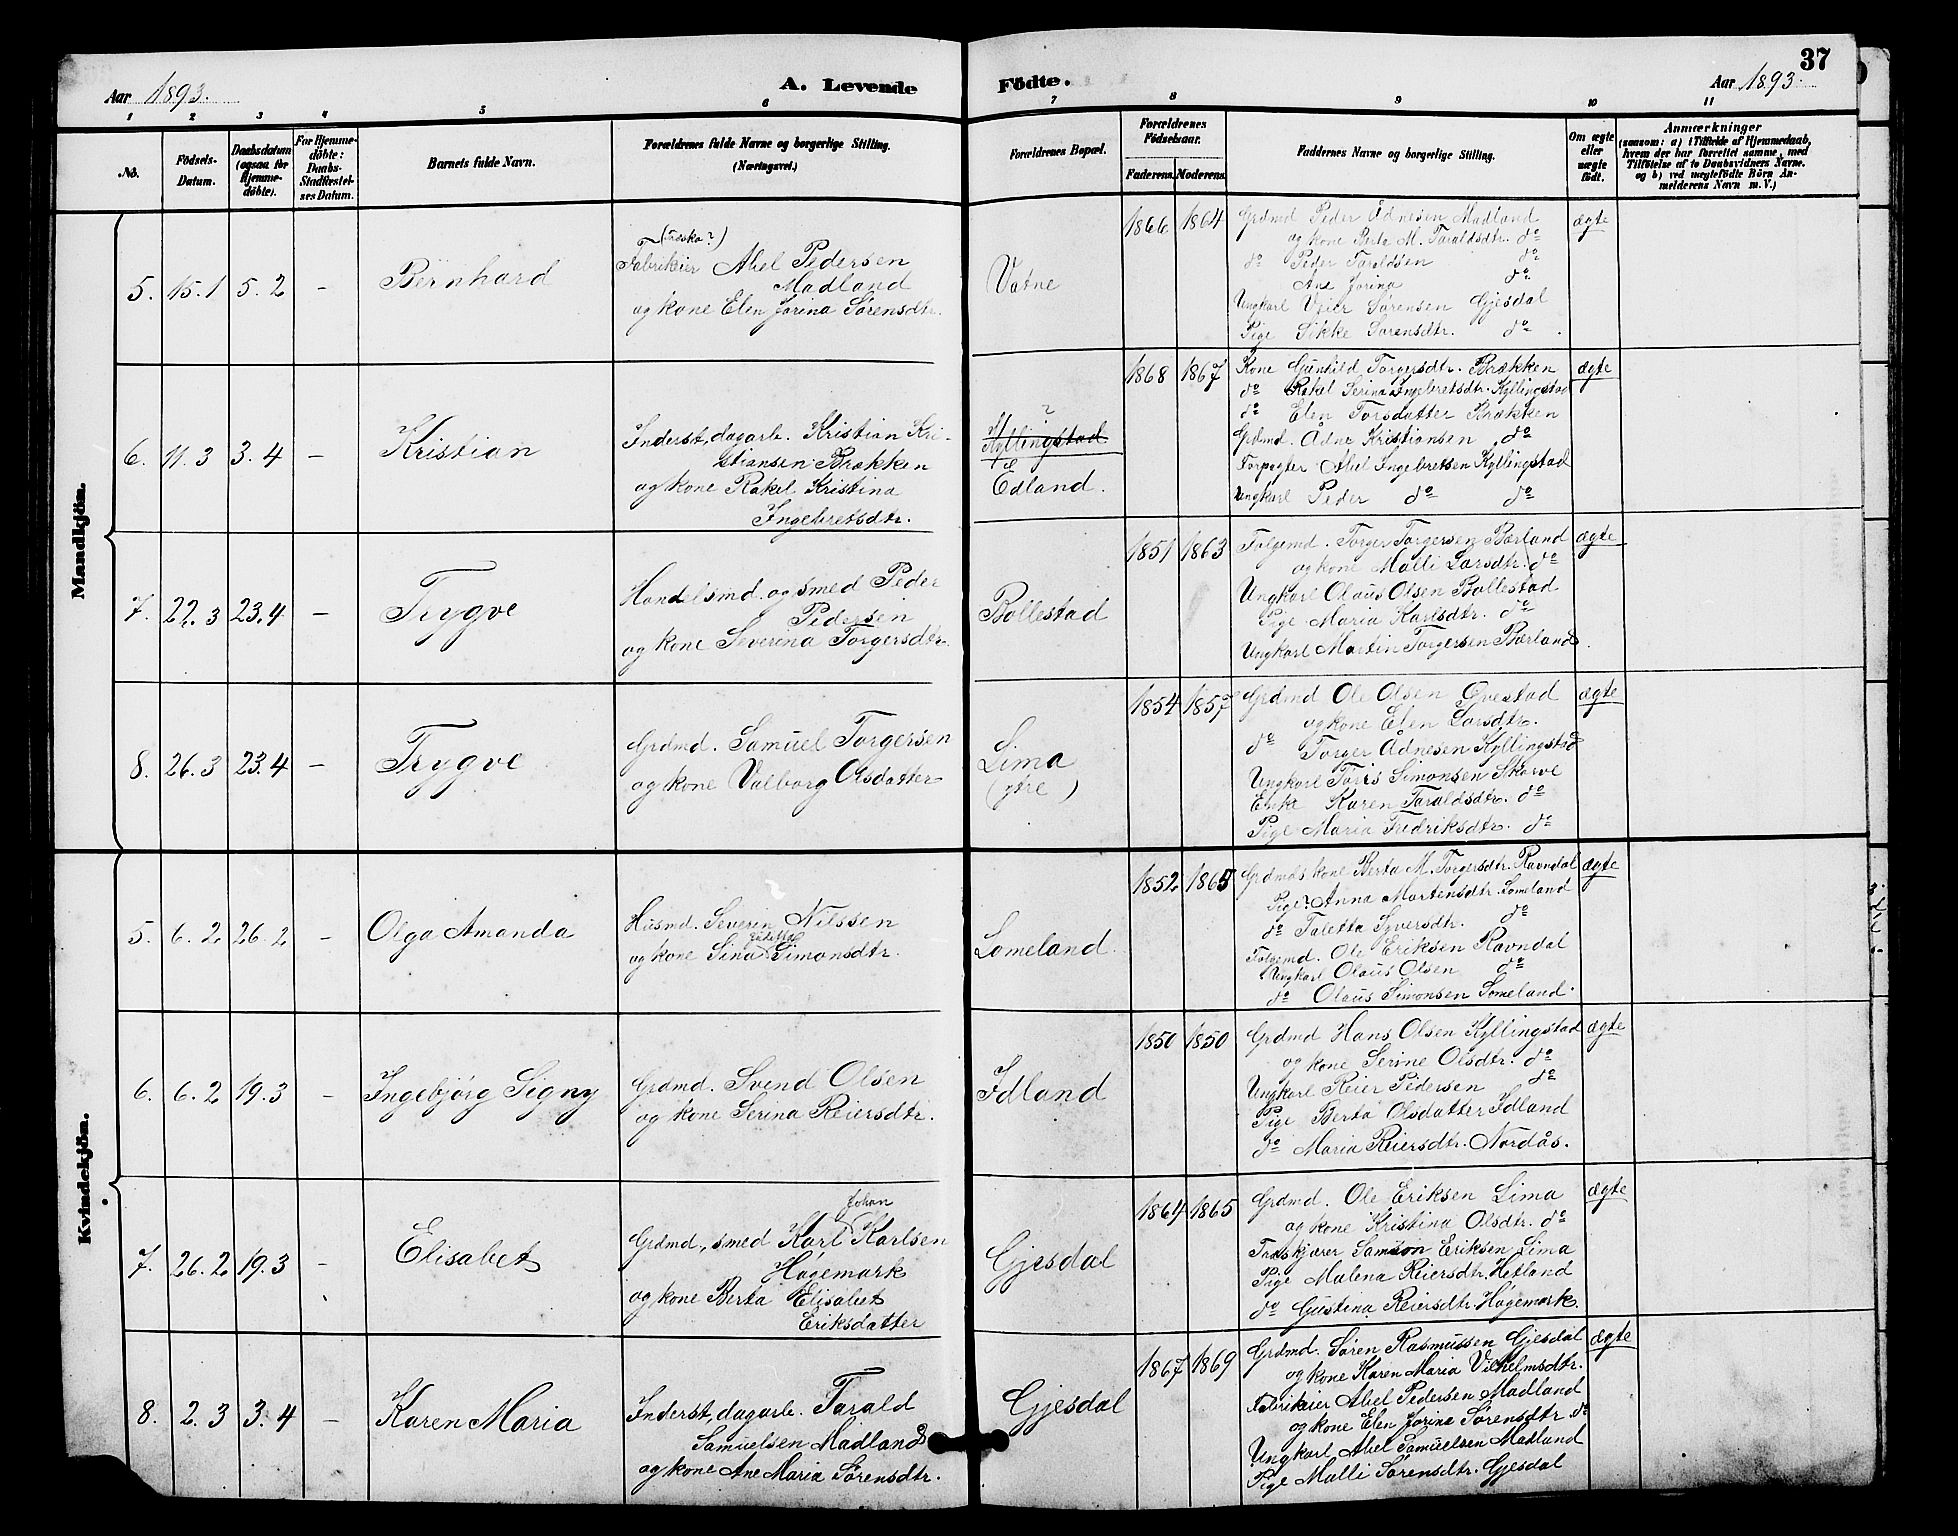 37
Aar 1893.
A. Levende Födte.
Aar 1893.
1 2 3 4 5 6 7 8 9 10 11
No.
Födsels-Datum.
Daabsdatum (ogsaa for Hjemme-döbte).
For Hjemme-döbte: Daabs-Stadfæstel-ses Datum.
Barnets fulde Navn.
Forældrenes fulde Navne og borgerlige Stilling. (Næringsvei.)
Forældrenes Bopæl.
Forældrenes Födselsaar.
Faderens. Moderens.
Faddernes Navne og borgerlige Stilling.
Om ægte eller uægte födt.
Anmærkninger
(saasom: a) i Tilfælde af Hjemmedaab,
hvem der har forrettet samme, med
Tilföielse af to Daabsvidners Navne.
og b) ved uægtefödte Börn An-
melderens Navn m. V.)
Mandkjön.
5. 15.1 5.2 – Bernhard
Fabrikeier Abel Pedersen
Madland
og kone Elen Jorina Sørensdtr.
Vatne
1866 1864
Grdmd Peder Ådnesen Madland
og kone Berta M. Taraldsdtr. do
do Peder Taraldsen do
Ane Jorina do
Ungkarl Veier Sørensen Gjesdal
Pige Sikke Sørensdtr. do
ægte
6. 11.3 3.4 – Kristian
Inderst, dagarb. Kristian Kri-
stiansen Brækken
og kone Rakel Kristina
Ingebretsdtr.
?
Kyllingstad
Edland.
1868 1867
Kone Gunhild Torgersdtr. Brækken
do Rakel Serina Ingebretsdtr. Kyllingstad
do Elen Torsdatter Brækken
Grdmd. Ådne Kristiansen do
Forpagter Abel Ingebretsen Kyllingstad
Ungkarl Peder do do
ægte
7. 22.3 23.4 – Trygve
Handelsmd. og smed Peder
Pedersen
og kone Severina Torgersdtr.
Bollestad
1851 1863
Følgemd. Torger Torgersen Bærland
og kone Malli Larsdtr. do
Ungkarl Olaus Olsen Bollestad
Pige Maria Karlsdtr. do
Ungkarl Martin Torgersen Bærland.
ægte
8. 26.3 23.4 – Trygve
Grdmd. Samuel Torgersen
og kone Valborg Olsdatter
Lima
(ytre)
1854 1857
Grdmd Ole Olsen Øvestad
og kone Elen Larsdtr.
do Torger Ådnesen Kyllingstad
Ungkarl Tøris Simonsen Skarve
Enke Karen Taraldsdtr. do
Pige Maria Fredriksdtr. do
ægte
Kvindekjön.
5. 6.2 26.2 – Olga Amanda
Husmd. Severin Nilssen
og kone Sina Simonsdtr.
Lomeland.
1852 1865
Grdmds kone Berta M. Torgersdtr. Ravndal
Pige? Anna Martensdtr. Lomeland
do Taletta Syversdtr. do
Følgemd. Ole Eriksen Ravndal
Ungkarl Olaus Olsen do
do Olaus Simonsen Lomeland.
ægte
6. 6.2 19.3 – Ingebjørg Signy
Grdmd. Svend Olsen
og kone Serina Reiersdtr.
Idland
1850 1850
Grdmd Hans Olsen Kyllingstad
og kone Serine Olsdtr. do
Ungkarl Reier Pedersen do
Pige Berta Olsdatter Idland
do Maria Reiersdtr. Nordås.
ægte
7. 26.2 19.3 – Elisabet
Johan
Grdmd, smed Karl Karlsen
Hagemark
og kone Berta Elisabet
Eriksdatter
Gjesdal
1864 1865
Grdmd. Ole Eriksen Lima
og kone Kristina Olsdtr. do
Træskjærer Samson Eriksen Lima
Pige Malena Reiersdtr. Hetland
do Gustina Reiersdtr. Hagemark.
ægte
8. 2.3 3.4 – Karen Maria
Inderst, dagarb. Tarald
Samuelsen Madland
og kone Ane Maria Sørensdtr.
Gjesdal
1867 1869
Grdmd. Søren Rasmussen Gjesdal
og kone Karen Maria Vilhelmsdtr.
Fabrikeier Abel Pedersen Madland
og kone Elen Jorina Sørensdtr do
Ungkarl Abel Samuelsen Madland
Pige Malli Sørensdtr. Gjesdal
ægte